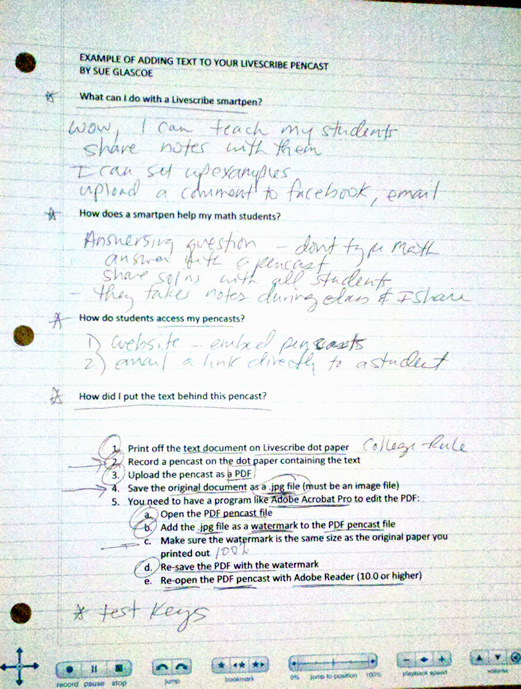 EXAMPLE OF ADDING TEXT TO YOUR LIVESCRIBE PENCAST
BY SUE GLASCOE
What can I do with a Livescribe smartpen?
Wow, I can teach my students
share notes with them
I can set up examples
upload a comment to facebook, email
How does a smartpen help my math students?
Answersing question - dont type math
answer with a pencast
share solns with all students
- they takes notes during class & I share
How do students access my pencasts?
1) website - embed pencasts
2) email a link directly to a student
How did I put the text behind this pencast?
1. Print off the text document on Livescribe dot paper College-Rule
2. Record a pencast on the dot paper containing the text
3. Upload the pencast as a PDF
4. Save the original document as a .jpg file (must be an image file)
5. You need to have a program like Adobe Acrobat Pro to edit the PDF:
a. Open the PDF pencast file
b. Add the .jpg file as a watermark to the PDF pencast file
c. Make sure the watermark is the same size as the original paper you
printed out 100%
d. Re-save the PDF with the watermark
e. Re-open the PDF pencast with Adobe Reader (10.0 or higher)
* test keys
record pause stop jump bookmark 0% jump to position 100% playback speed volume